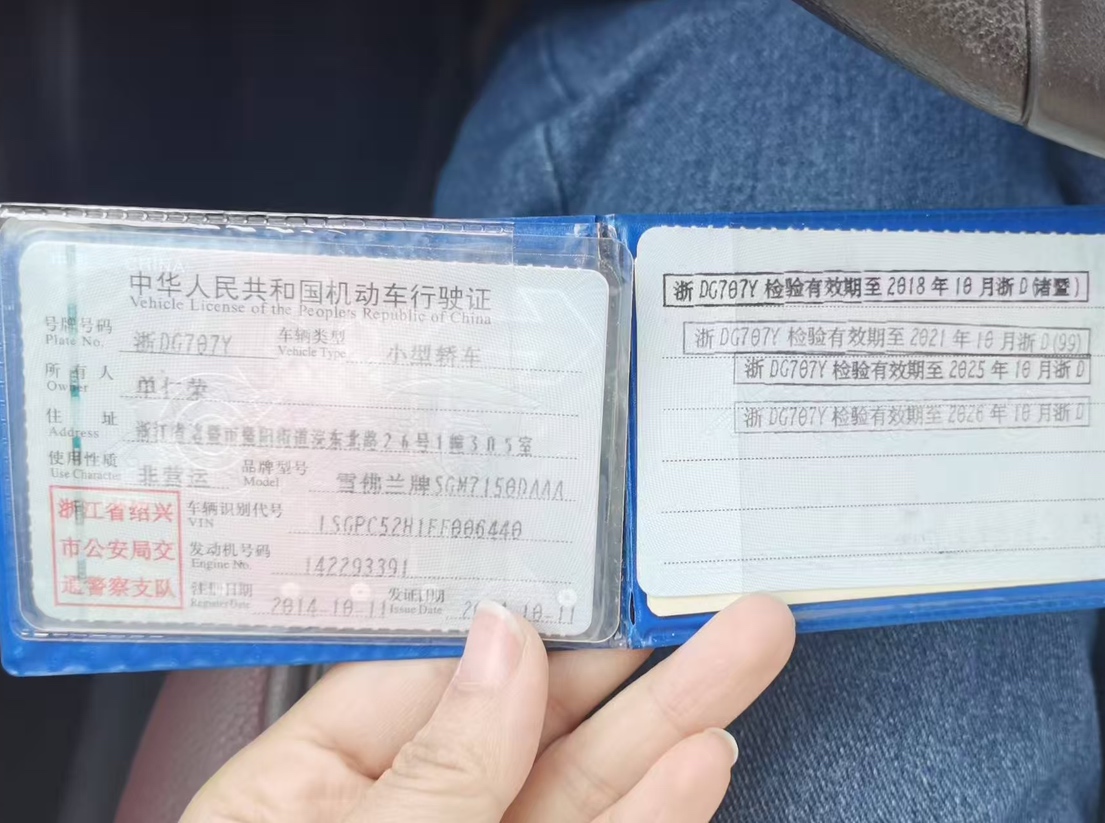 中华人民共和国机动车行驶证
Vehicle License of the People's Republic of China
号牌号码 浙DG707Y 车辆类型 小型轿车
Plate No. Vehicle Type
所有人 单仁荣
Owner
住址 浙江省诸暨市暨阳街道浣东北路26号1幢305室
Address
使用性质 非营运 品牌型号 雪佛兰牌SGM7150DAAA
Use Character Model
浙江省绍兴
市公安局交
通警察支队
车辆识别代号 LSGPC52H1FF006440
VIN
发动机号码 142293391
Engine No.
注册日期 2014-10-11 发证日期 10-11
Register Date Issue Date
浙DG707Y检验有效期至2018年10月浙D(诸暨)
浙DG707Y检验有效期至2021年10月浙D(99)
浙DG707Y检验有效期至2025年10月浙D
浙DG707Y检验有效期至2026年10月浙D